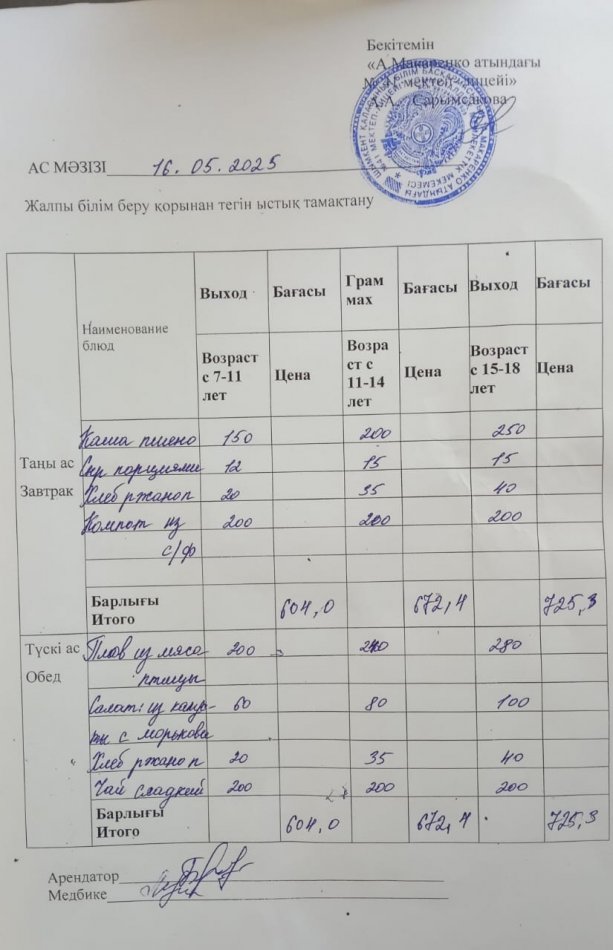 Бекітемін
«А.Макаренко атындағы
№ 41 мектеп-лицейі»
А.А. Сарымсакова
АС МӘЗІЗІ 16.05.2025
Жалпы білім беру қорынан тегін ыстық тамақтану
Наименование блюд
Выход Бағасы Грам мах Бағасы Выход Бағасы
Возраст с 7-11 лет Цена Возра ст с 11-14 лет Цена Возраст с 15-18 лет Цена
Таңы ас
Завтрак
Каша пшено 150 200 250
Сыр порциями 12 15 15
Хлеб ржаноп 20 35 40
Компот из 200 200 200
с/ф
Барлығы
Итого 604,0 672,4 725,3
Түскі ас
Обед
Плов из мяса 200 240 280
птицы
Салат из капус-
ты с морькова 60 80 100
Хлеб ржаноп 20 35 40
Чай сладкий 200 200 200
Барлығы
Итого 604,0 672,4 725,3
Арендатор
Медбике